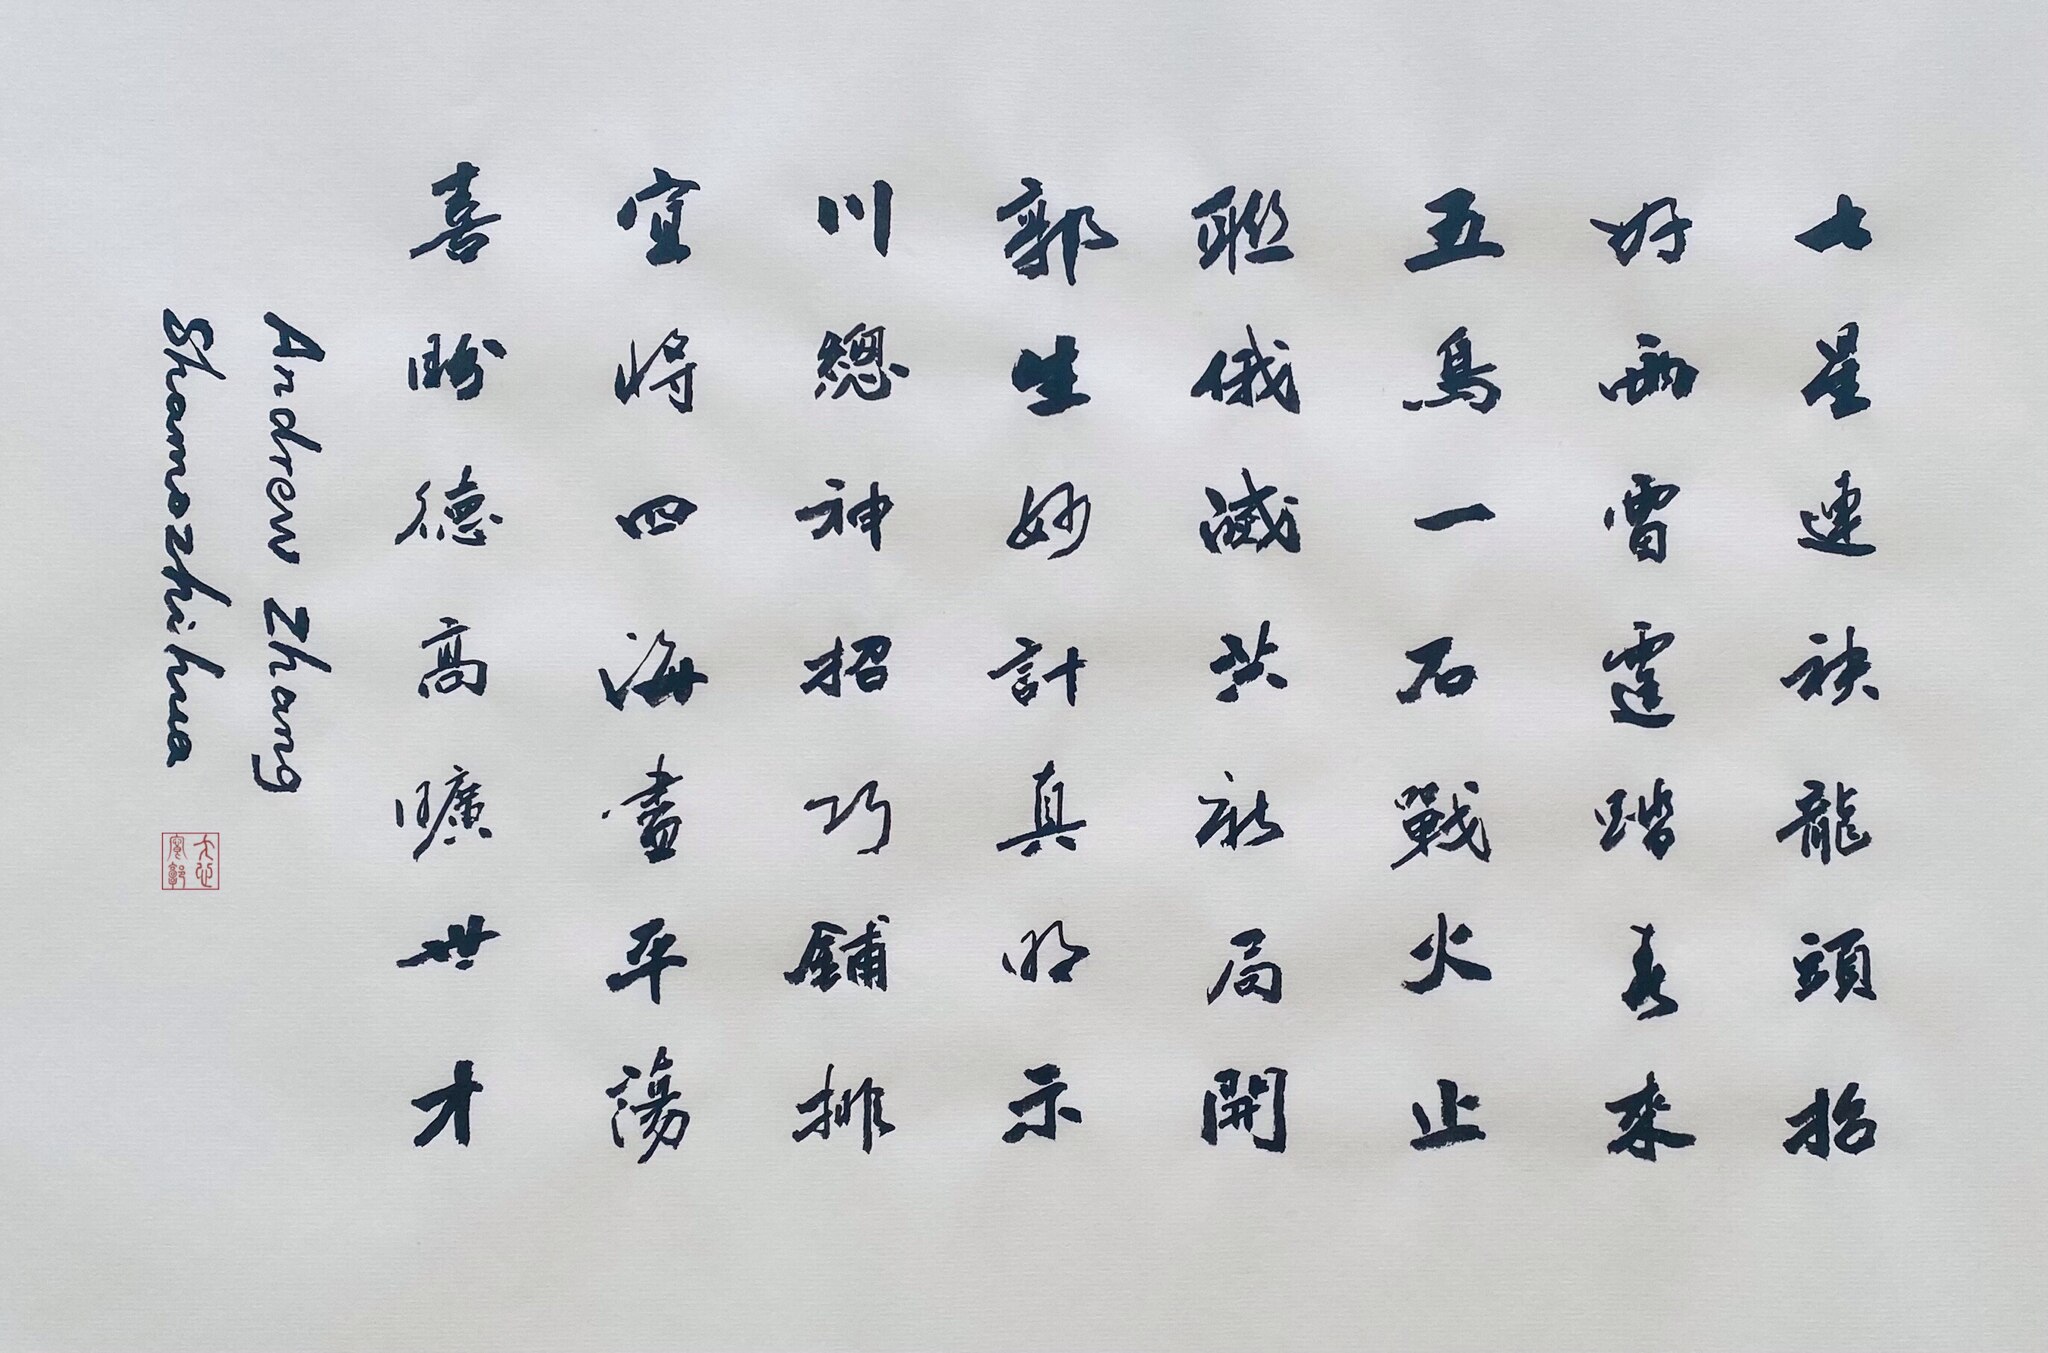 七星連袂龍頭抬
好雨雷霆踏春來
五鳥一石戰火止
聯俄滅共新局開
郭生妙計真明示
川總神招巧鋪排
宜將四海盡平蕩
喜盼德高曠世才
Andrew Zhang
Shamozhihua